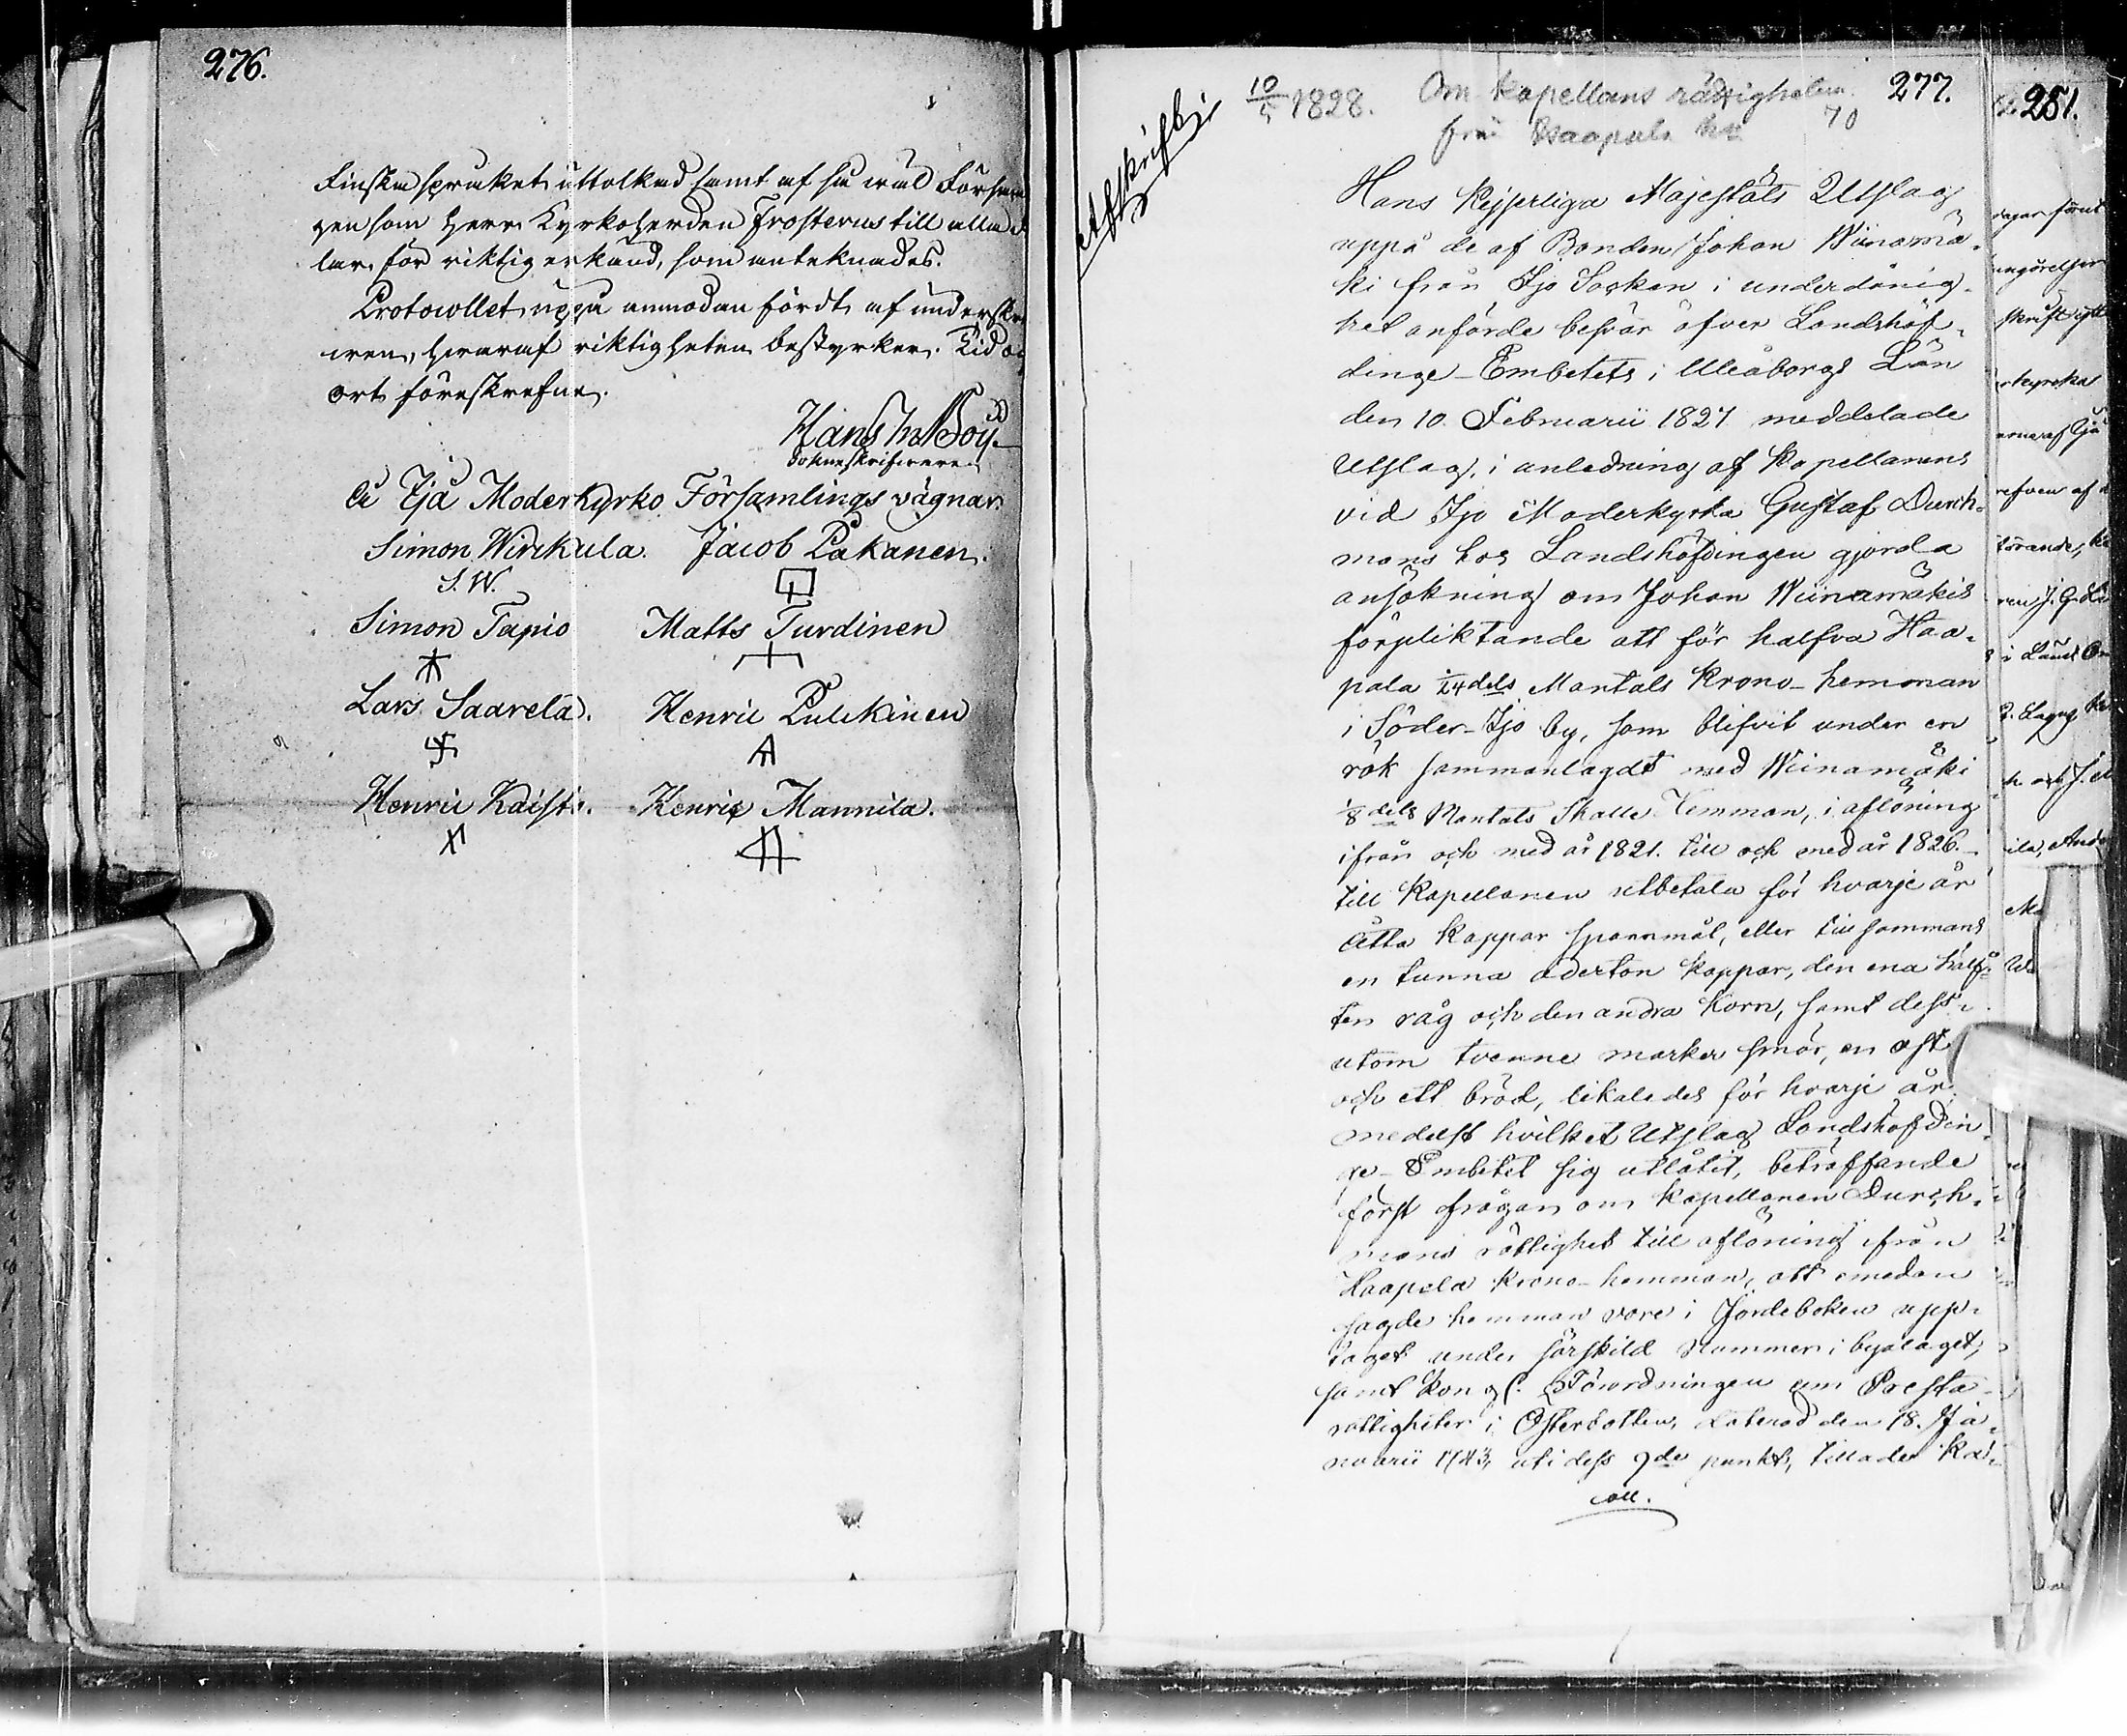 276.
Finska språket uttolkad samt af så wäl Församlin
gen som Herr Kyrkoherden Frosterus till alla de
lar för riktig erkänd, som anteknades.
Protocollet uppå anmodan fördt af underskr
wen, hwaraf riktigheten bestyrker. Tid oc
ort förreskrefne.
Hans In Boij
Sokneskrifware
Å Ijå Moderkyrko Församlings vägnar.
Simon Wirckula. Jacob Pakanen.
S. W.
Simon Tapio Matts Turdinen
Lars Saarela. Henric Pulckinen
Henric Kaisto. Henric Mannila.
277.
10/5 1828. Om kapellans rättigheten
från Haapala hn 70
Afskrift
Hans Kejserliga Majestäts Utslag
uppå de af Bonden Johan Wiinamä-
ki från Ijo Socken i underdånig-
het anförde besvär öfver Landshöf-
dinge-Embetets i Uleåborgs Län
den 10 Februarii 1827 meddelade
Utslag, i anledning af Kapellanens
vid Ijo Moderkyrka Gustaf Durch-
mans hos Landshöfdingen gjorda
ansökning om Johan Wiinamäkis
förpliktande att för halfva Haa-
pala 1/24dels Mantals Krono-hemman
i Söder-Ijo by, som blifvit under en
rök sammanlagdt med Wiinamäki
1/8dels Mantals Skatte Hemman, i aflöning
ifrån och med år 1821. till och med år 1826.
till Kapellanen utbetala för hvarje år
åtta kappar spannmål, eller tillsammans
en tunna aderton kappar, den ena hälf-
ten råg och den andra korn, samt dess-
utom tvenne marker smör, en ost
och ett bröd, likaledes för hvarje år
medelst hvilket Utslag Landshöfdin-
ge-Embetet sig utlåtit, beträffande
först frågan om Kapellanen Durch-
mans rättighet till aflöning ifrån
Haapala Krono-hemman, att emedan
sagde hemman vore i Jordeboken upp-
taget under särskild Nummer i byalaget,
samt Kongl. Förordningen om Presta-
rättigheter i Österbotten, daterad den 18. Ja-
nuarii 1743, uti dess 9de punkt, tillader Ka-
coll.
281.